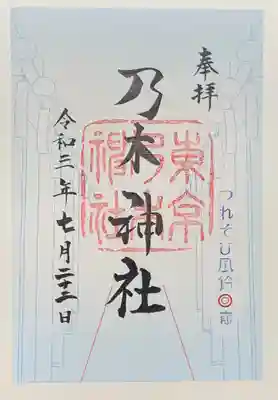 奉拝
つれそひ風鈴
東京
乃木
神社
乃木神社
令和三年七月二十二日